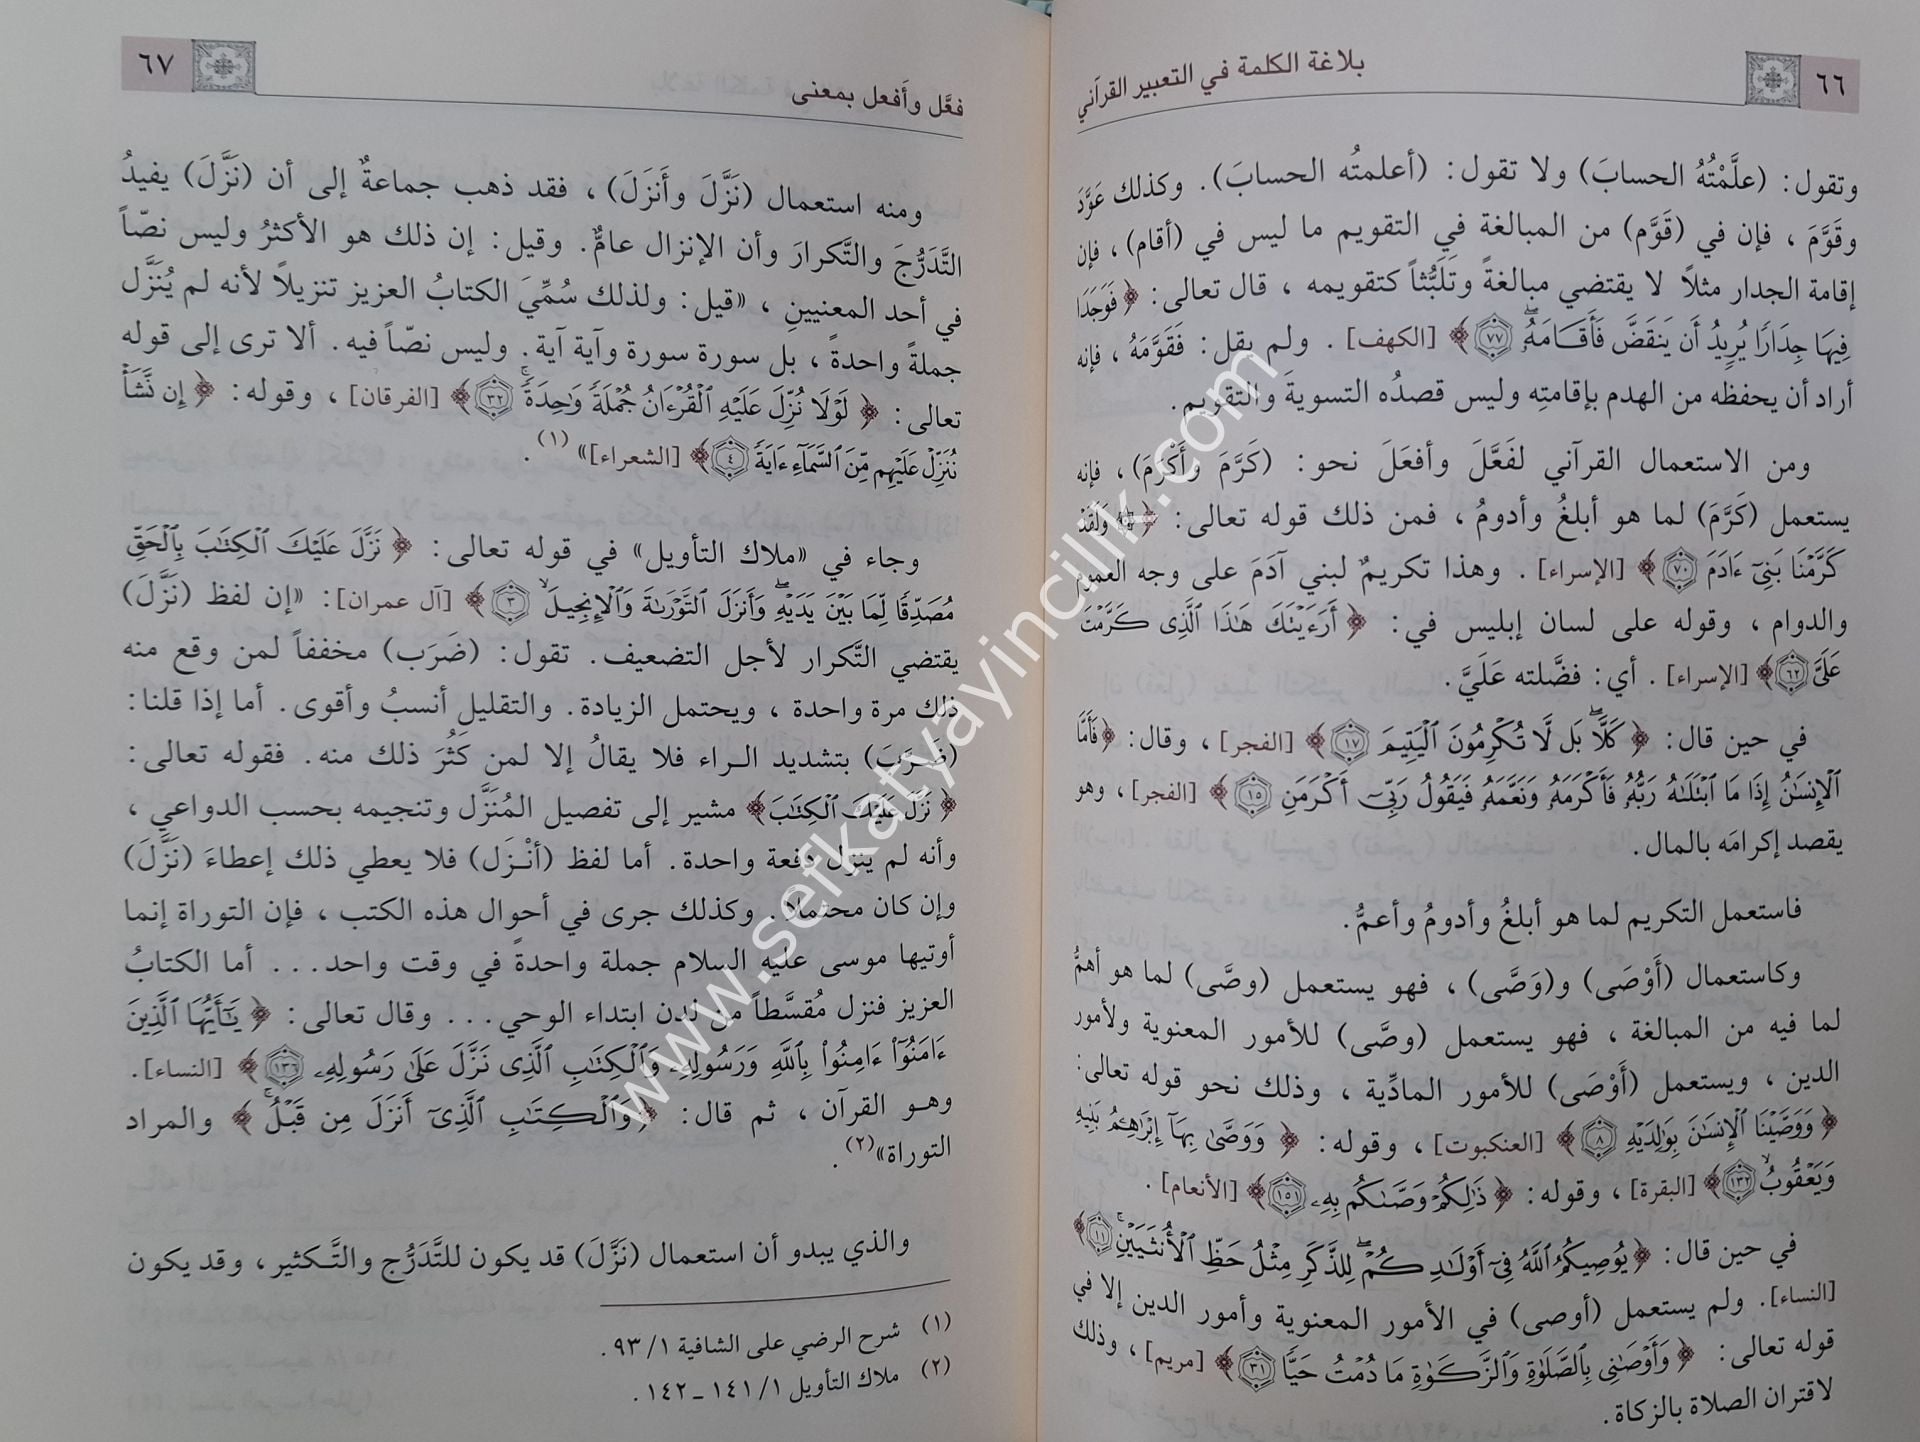 ٦٦
بلاغة الكلمة في التعبير القرآني
وتقول: (علَّمْتُهُ الحسابَ) ولا تقول: (أعلمتُه الحسابَ). وكذلك عَوَّدَ
وقَوَّمَ ، فإن في (قَوَّم) من المبالغة في التقويم ما ليس في (أقام) ، فإن
إقامة الجدار مثلًا لا يقتضي مبالغةً وتَلَبُّثاً كتقويمه ، قال تعالى: ﴿فَوَجَدَا
فِيهَا جِدَارًا يُرِيدُ أَن يَنقَضَّ فَأَقَامَهُۥۖ ٧٧﴾ [الكهف] . ولم يقل: فَقَوَّمَهُ ، فإنه
أراد أن يحفظه من الهدم بإقامتِه وليس قصدُه التسويةَ والتقويم.
ومن الاستعمال القرآني لفَعَّلَ وأفعَلَ نحو: (كَرَّمَ وأَكْرَمَ) ، فإنه
يستعمل (كَرَّمَ) لما هو أبلغُ وأدومُ ، فمن ذلك قوله تعالى: ﴿۞ وَلَقَدْ
كَرَّمْنَا بَنِىٓ ءَادَمَ ٧٠﴾ [الإسراء] . وهذا تكريمٌ لبني آدَمَ على وجه العموم
والدوام ، وقوله على لسان إبليس في: ﴿أَرَءَيْتَكَ هَٰذَا ٱلَّذِى كَرَّمْتَ
عَلَىَّ ٦٢﴾ [الإسراء] . أي: فضَّلته عَلَيَّ.
في حين قال: ﴿كَلَّاۖ بَل لَّا تُكْرِمُونَ ٱلْيَتِيمَ ١٧﴾ [الفجر] ، وقال: ﴿فَأَمَّا
ٱلْإِنسَٰنُ إِذَا مَا ٱبْتَلَىٰهُ رَبُّهُۥ فَأَكْرَمَهُۥ وَنَعَّمَهُۥ فَيَقُولُ رَبِّىٓ أَكْرَمَنِ ١٥﴾ [الفجر] ، وهو
يقصد إكرامَه بالمال.
فاستعمل التكريم لما هو أبلغُ وأدومُ وأعمُّ.
وكاستعمال (أَوْصَى) و(وَصَّى) ، فهو يستعمل (وصَّى) لما هو أهمُّ
لما فيه من المبالغة ، فهو يستعمل (وصَّى) للأمور المعنوية ولأمور
الدين ، ويستعمل (أَوْصَى) للأمور المادِّية ، وذلك نحو قوله تعالى:
﴿وَوَصَّيْنَا ٱلْإِنسَٰنَ بِوَٰلِدَيْهِ ٨﴾ [العنكبوت] ، وقوله: ﴿وَوَصَّىٰ بِهَآ إِبْرَٰهِـۧمُ بَنِيهِ
وَيَعْقُوبُ ١٣٢﴾ [البقرة] ، وقوله: ﴿ذَٰلِكُمْ وَصَّىٰكُم بِهِۦ ١٥١﴾ [الأنعام] .
في حين قال: ﴿يُوصِيكُمُ ٱللَّهُ فِىٓ أَوْلَٰدِكُمْۖ لِلذَّكَرِ مِثْلُ حَظِّ ٱلْأُنثَيَيْنِۚ ١١﴾
[النساء]. ولم يستعمل (أوصى) في الأمور المعنوية وأمور الدين إلا في
قوله تعالى: ﴿وَأَوْصَٰنِى بِٱلصَّلَوٰةِ وَٱلزَّكَوٰةِ مَا دُمْتُ حَيًّا ٣١﴾ [مريم] ، وذلك
لاقتران الصلاة بالزكاة.
فعَّل وأفعل بمعنى
٦٧
ومنه استعمال (نَزَّلَ وأَنزَلَ) ، فقد ذهب جماعةٌ إلى أن (نَزَّلَ) يفيدُ
التَّدَرُّجَ والتَّكرارَ وأن الإنزال عامٌّ. وقيل: إن ذلك هو الأكثرُ وليس نصّاً
في أحد المعنيينِ ، «قيل: ولذلك سُمِّيَ الكتابُ العزيز تنزيلاً لأنه لم يُنَزَّل
جملةً واحدةً ، بل سورة سورة وآية آية. وليس نصّاً فيه. ألا ترى إلى قوله
تعالى: ﴿لَوْلَا نُزِّلَ عَلَيْهِ ٱلْقُرْءَانُ جُمْلَةً وَٰحِدَةًۚ ٣٢﴾ [الفرقان] ، وقوله: ﴿إِن نَّشَأْ
نُنَزِّلْ عَلَيْهِم مِّنَ ٱلسَّمَآءِ ءَايَةً ٤﴾ [الشعراء]»(١) .
وجاء في «ملاك التأويل» في قوله تعالى: ﴿نَزَّلَ عَلَيْكَ ٱلْكِتَٰبَ بِٱلْحَقِّ
مُصَدِّقًا لِّمَا بَيْنَ يَدَيْهِۖ وَأَنزَلَ ٱلتَّوْرَىٰةَ وَٱلْإِنجِيلَۙ ٣﴾ [آل عمران]: «إن لفظ (نَزَّلَ)
يقتضي التَّكرار لأجل التضعيف. تقول: (ضَرَب) مخففاً لمن وقع منه
ذلك مرة واحدة ، ويحتمل الزيادة. والتقليل أنسبُ وأقوى. أما إذا قلنا:
(ضرَّبَ) بتشديد الراء فلا يقالُ إلا لمن كَثُرَ ذلك منه. فقوله تعالى:
﴿نَزَّلَ عَلَيْكَ ٱلْكِتَٰبَ﴾ مشير إلى تفصيل المُنَزَّل وتنجيمه بحسب الدواعي ،
وأنه لم ينزل دفعة واحدة. أما لفظ (أنْزَل) فلا يعطي ذلك إعطاءَ (نَزَّلَ)
وإن كان محتملًا. وكذلك جرى في أحوال هذه الكتب ، فإن التوراة إنما
أوتيها موسى عليه السلام جملة واحدةً في وقت واحد... أما الكتابُ
العزيز فنزل مُقسَّطاً من لدن ابتداء الوحي... وقال تعالى: ﴿يَٰٓأَيُّهَا ٱلَّذِينَ
ءَامَنُوٓا۟ ءَامِنُوا۟ بِٱللَّهِ وَرَسُولِهِۦ وَٱلْكِتَٰبِ ٱلَّذِى نَزَّلَ عَلَىٰ رَسُولِهِۦ ١٣٦﴾ [النساء].
وهو القرآن ، ثم قال: ﴿وَٱلْكِتَٰبِ ٱلَّذِىٓ أَنزَلَ مِن قَبْلُۚ﴾ والمراد
التوراة»(٢) .
والذي يبدو أن استعمال (نَزَّلَ) قد يكون للتَّدَرُّج والتَّكثير ، وقد يكون
(١) شرح الرضي على الشافية ١/ ٩٣ .
(٢) ملاك التأويل ١/ ١٤١ ـ ١٤٢ .
www.sefkatyayincilik.com